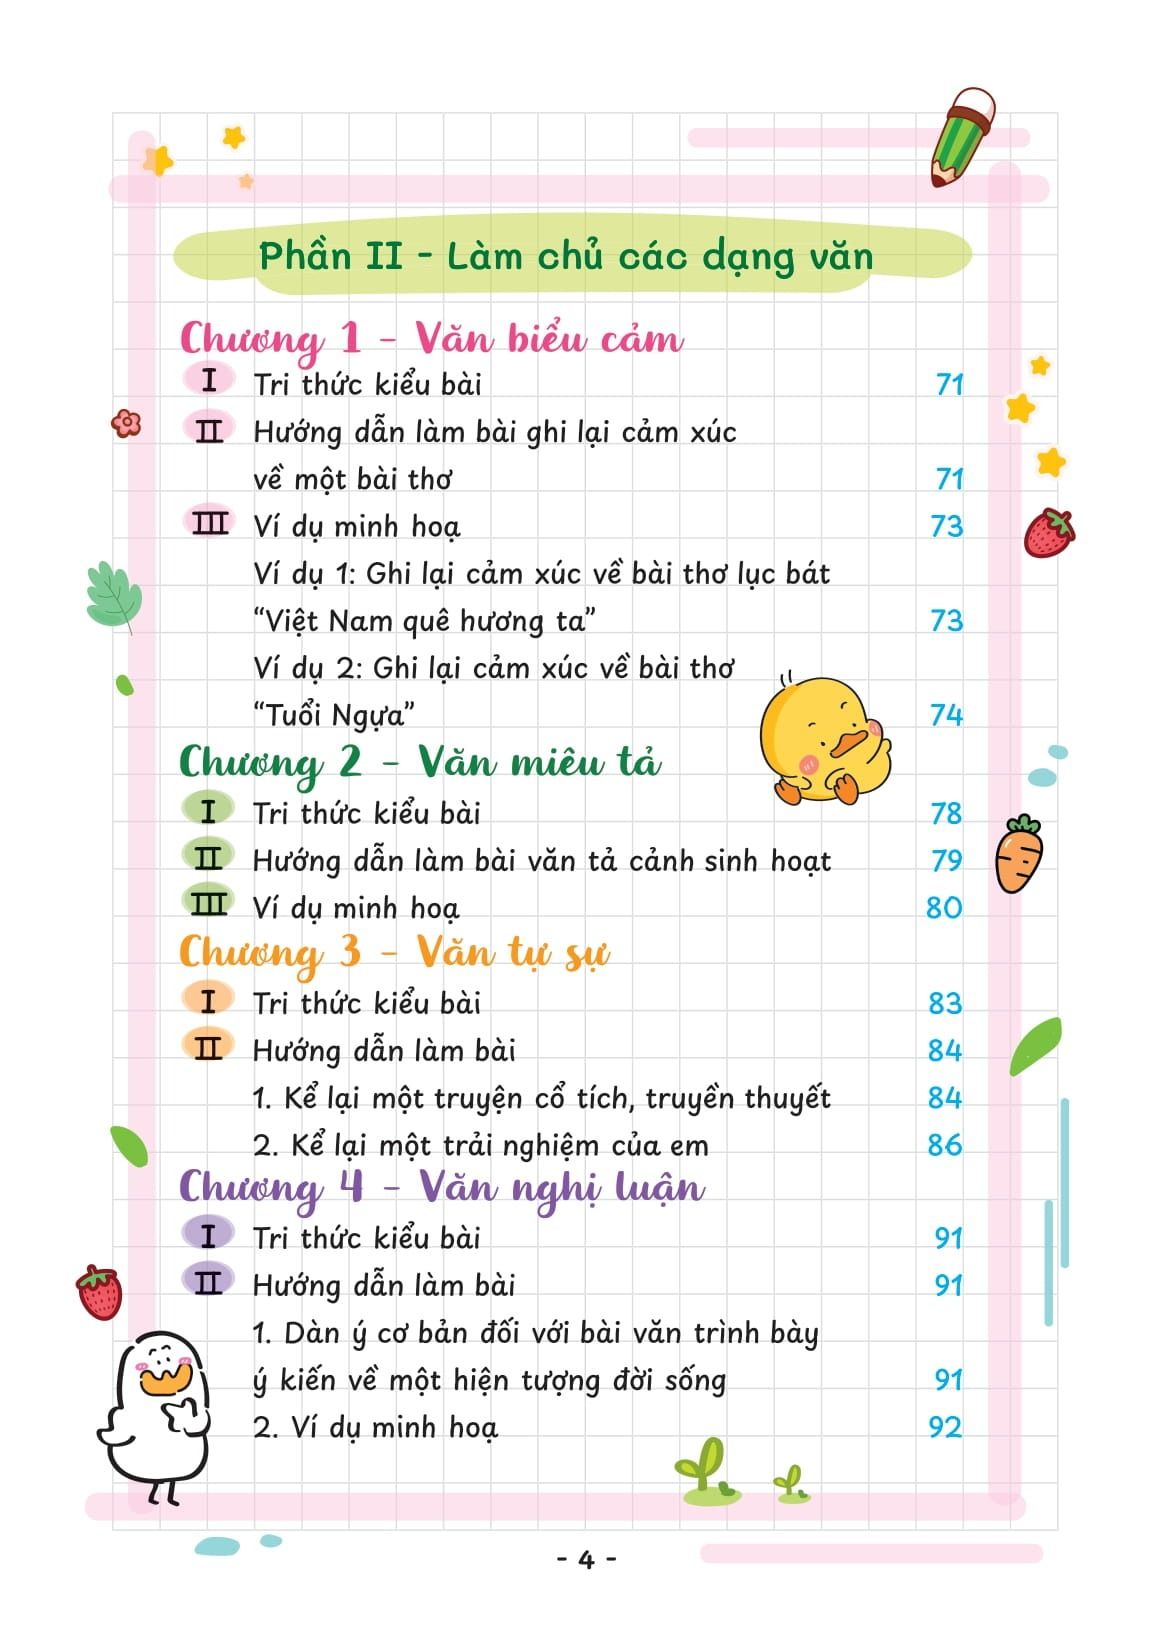 Phần II - Làm chủ các dạng văn
Chương 1 - Văn biểu cảm
I Tri thức kiểu bài 71
II Hướng dẫn làm bài ghi lại cảm xúc
về một bài thơ 71
III Ví dụ minh hoạ 73
Ví dụ 1: Ghi lại cảm xúc về bài thơ lục bát
“Việt Nam quê hương ta” 73
Ví dụ 2: Ghi lại cảm xúc về bài thơ
“Tuổi Ngựa” 74
Chương 2 - Văn miêu tả
I Tri thức kiểu bài 78
II Hướng dẫn làm bài văn tả cảnh sinh hoạt 79
III Ví dụ minh hoạ 80
Chương 3 - Văn tự sự
I Tri thức kiểu bài 83
II Hướng dẫn làm bài 84
1. Kể lại một truyện cổ tích, truyền thuyết 84
2. Kể lại một trải nghiệm của em 86
Chương 4 - Văn nghị luận
I Tri thức kiểu bài 91
II Hướng dẫn làm bài 91
1. Dàn ý cơ bản đối với bài văn trình bày
ý kiến về một hiện tượng đời sống 91
2. Ví dụ minh hoạ 92
- 4 -